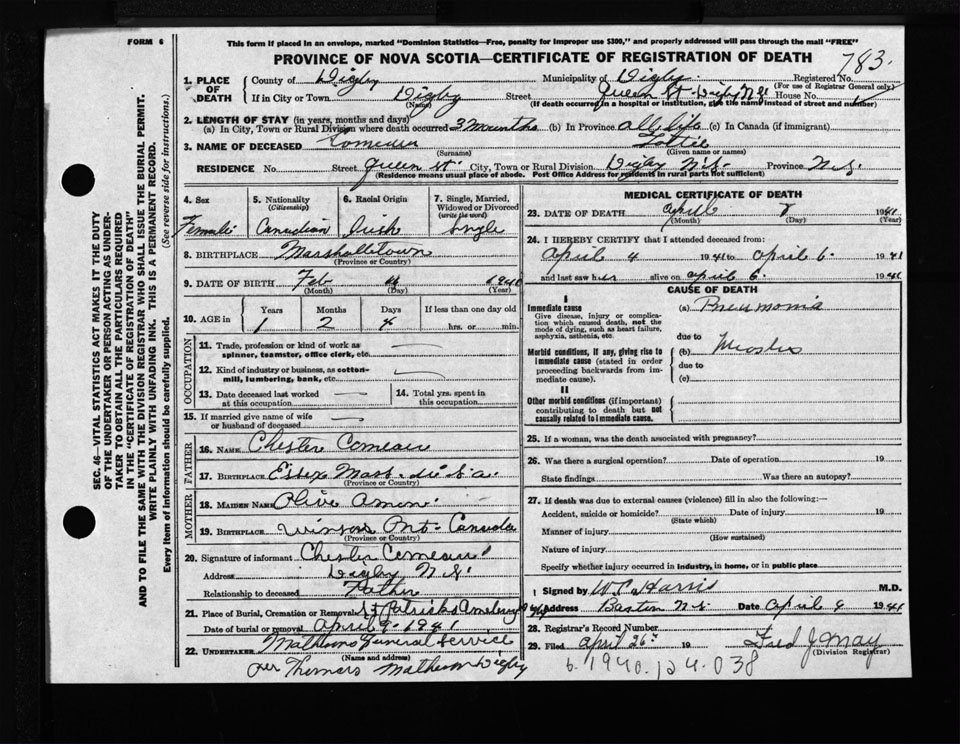 FORM 6
This form if placed in an envelope, marked "Dominion Statistics—Free, penalty for improper use $300," and properly addressed will pass through the mail "FREE"
PROVINCE OF NOVA SCOTIA—CERTIFICATE OF REGISTRATION OF DEATH
783.
1. PLACE OF DEATH County of Digby Municipality of Digby. Registered No.
(For use of Registrar General only)
If in City or Town Digby Street Queen St Digby N.S. House No.
(Name) (If death occurred in a hospital or institution, give the name instead of street and number)
2. LENGTH OF STAY (in years, months and days)
(a) In City, Town or Rural Division where death occurred 3 Mounths (b) In Province all life (c) In Canada (if immigrant)
3. NAME OF DECEASED Comeau Lottie
(Surname) (Given name or names)
RESIDENCE No. Street Queen St. City, Town or Rural Division Digby N.S. Province N.S.
(Residence means usual place of abode. Post Office Address for residents in rural parts not sufficient)
4. Sex Female
5. Nationality (Citizenship) Canadian
6. Racial Origin Irish
7. Single, Married, Widowed or Divorced (write the word) Single
8. BIRTHPLACE Marshalltown
(Province or Country)
9. DATE OF BIRTH Feb 1940
(Month) (Day) (Year)
10. AGE in Years Months Days If less than one day old
1 2 4 hrs. or min.
OCCUPATION
11. Trade, profession or kind of work as spinner, teamster, office clerk, etc.
12. Kind of industry or business, as cotton-mill, lumbering, bank, etc.
13. Date deceased last worked at this occupation
14. Total yrs. spent in this occupation
15. If married give name of wife or husband of deceased
FATHER
16. NAME Chester Comeau
17. BIRTHPLACE Essex Mass.
(Province or Country)
MOTHER
18. MAIDEN NAME Olive
19. BIRTHPLACE Ont. Canada
(Province or Country)
20. Signature of informant Chester Comeau
Address Digby N.S.
Relationship to deceased Father
21. Place of Burial, Cremation or Removal St Patricks Cemetery
Date of burial or removal April 9 - 1941
22. UNDERTAKER Mathesons Funeral Service
(Name and address)
per Thomas Matheson Digby
MEDICAL CERTIFICATE OF DEATH
23. DATE OF DEATH April 1941
(Month) (Day) (Year)
24. I HEREBY CERTIFY that I attended deceased from:
April 4 1941 to April 6. 1941
and last saw her alive on April 6. 1941
CAUSE OF DEATH
I
Immediate cause (a) Pneumonia
Give disease, injury or complication which caused death, not the mode of dying, such as heart failure, asphyxia, asthenia, etc.
due to
Morbid conditions, if any, giving rise to immediate cause (stated in order proceeding backwards from immediate cause). (b) Measles
due to
(c)
II
Other morbid conditions (if important) contributing to death but not causally related to immediate cause.
25. If a woman, was the death associated with pregnancy?
26. Was there a surgical operation? Date of operation 19
State findings Was there an autopsy?
27. If death was due to external causes (violence) fill in also the following:—
Accident, suicide or homicide? Date of injury 19
(State which)
Manner of injury
(How sustained)
Nature of injury
Specify whether injury occurred in industry, in home, or in public place
Signed by Harris M.D.
Address N.S. Date April 1941
28. Registrar's Record Number
29. Filed April 26th 19 Fred J. May
(Division Registrar)
6.1940.124.038
SEC. 46—VITAL STATISTICS ACT MAKES IT THE DUTY
OF THE UNDERTAKER OR PERSON ACTING AS UNDER-
TAKER TO OBTAIN ALL THE PARTICULARS REQUIRED
IN THE "CERTIFICATE OF REGISTRATION OF DEATH"
AND TO FILE THE SAME WITH THE DIVISION REGISTRAR WHO SHALL ISSUE THE BURIAL PERMIT.
WRITE PLAINLY WITH UNFADING INK. THIS IS A PERMANENT RECORD.
Every item of information should be carefully supplied. (See reverse side for instructions.)